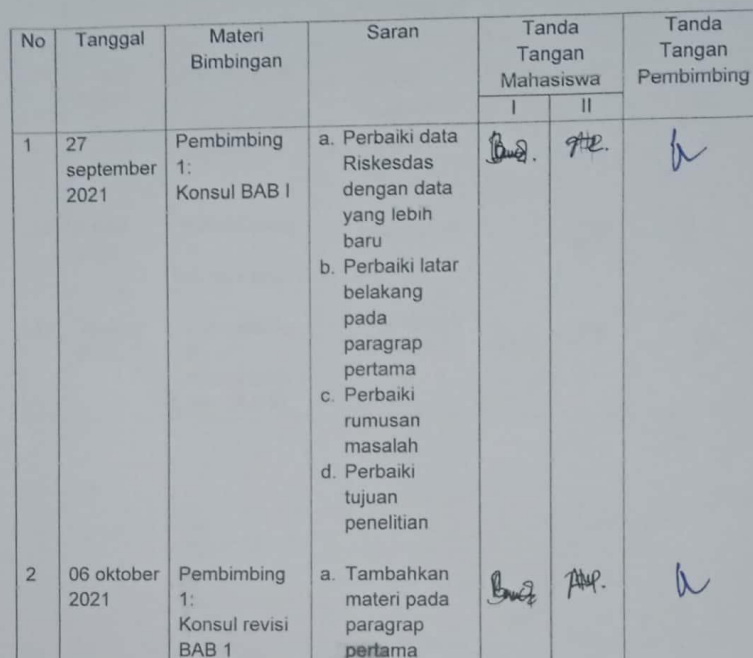 No
Tanggal
Materi
Bimbingan
Saran
Tanda
Tangan
Mahasiswa
I II
Tanda
Tangan
Pembimbing
1
27
september
2021
Pembimbing
1:
Konsul BAB I
a. Perbaiki data
Riskesdas
dengan data
yang lebih
baru
b. Perbaiki latar
belakang
pada
paragrap
pertama
c. Perbaiki
rumusan
masalah
d. Perbaiki
tujuan
penelitian
2
06 oktober
2021
Pembimbing
1:
Konsul revisi
BAB 1
a. Tambahkan
materi pada
paragrap
pertama